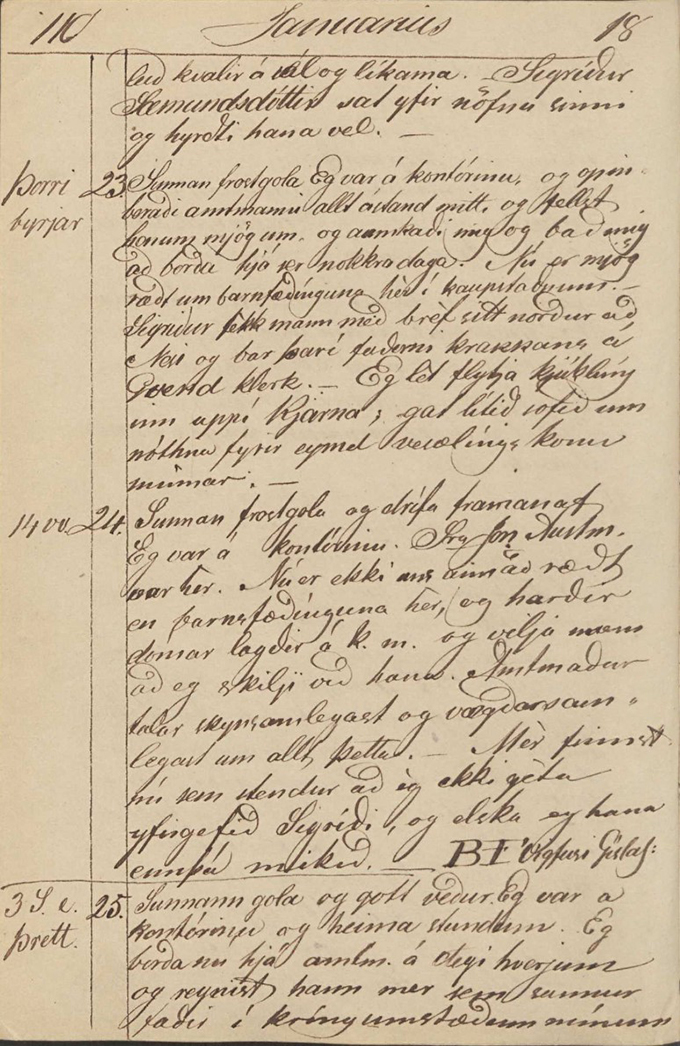 110 Januarius 18
leið kvalir á sál og líkama. – Sigríður
Sæmundsdóttir sat yfir nöfnu sinni
og hyrðti hana vel. –
Þorri 23. Sunnan frostgola Eg var á kontórinu, og opin-
byrjar beraði amtmanni allt ástand mitt, og fellst
honum mjög um, og aumkaði mig og bað mig
að borða hjá ser nokkra daga. Nú er mjög
rædt um barnfæðinguna hér í kaupstaðnum. –
Sigríður fekk mann með bréf sitt norður að
Nesi og bar þarí faderni krakkans á
Gvend klerk. – Eg lét flytja kjúklíng
inn uppí Kjarna; gat lítið sofið um
nóttina fyrir eymd vesælíngs konu
minnar. –
14 va. 24. Sunnan frostgola og drífa framanaf
Eg var á kontórinu. Sra Jón Austm.
var her. Nú er ekki um annað rædt
en barnsfæðínguna her, og harðir
dómar lagðir á k. m. og vilja menn
að eg skilji við hana. Amtmaður
talar skynsamlegast og vægðarsam-
legast um allt þetta. – Mér finnst
nú sem stendur að eg ekki géta
yfirgefið Sigríði, og elska eg hana
ennþá mikið. – BF Vigfusi Gíslas:
3 S. e. 25. Sunnann gola og gott veður. Eg var a
Þrett. kontórinu og heima stundum. Eg
borða nu hjá amtm. á degi hverjum
og reynist hann mer sem sannur
faðir í kríngumstæðum mínum